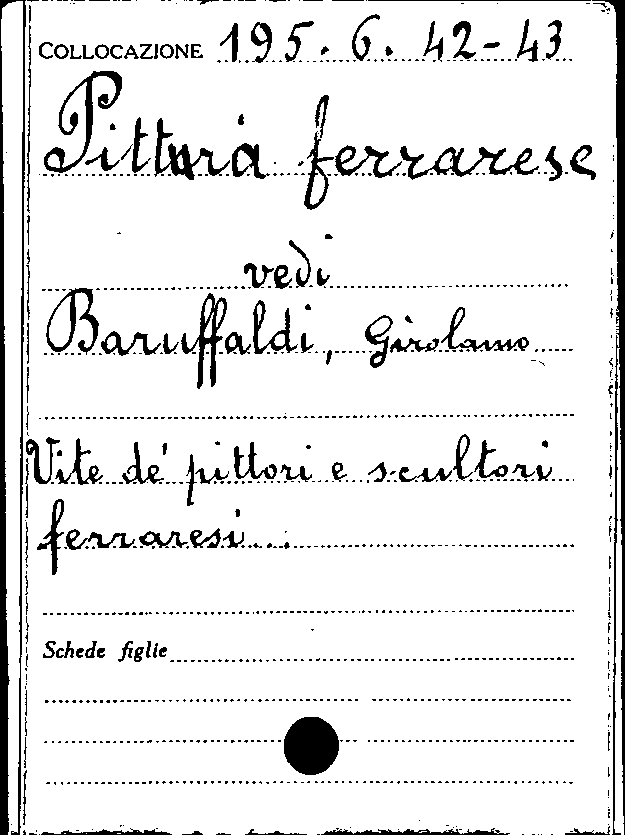 COLLOCAZIONE 195. 6. 42-43
Pittura ferrarese
vedi
Baruffaldi, Girolamo
Vite de' pittori e scultori
ferraresi...
Schede figlie